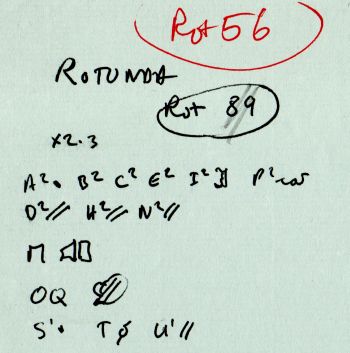 Rot 56
ROTUNDA
Rot 89
x2.3
A². B² C² E² I² P²
D²// H²// N²//
OQ
S'. T ø U'//